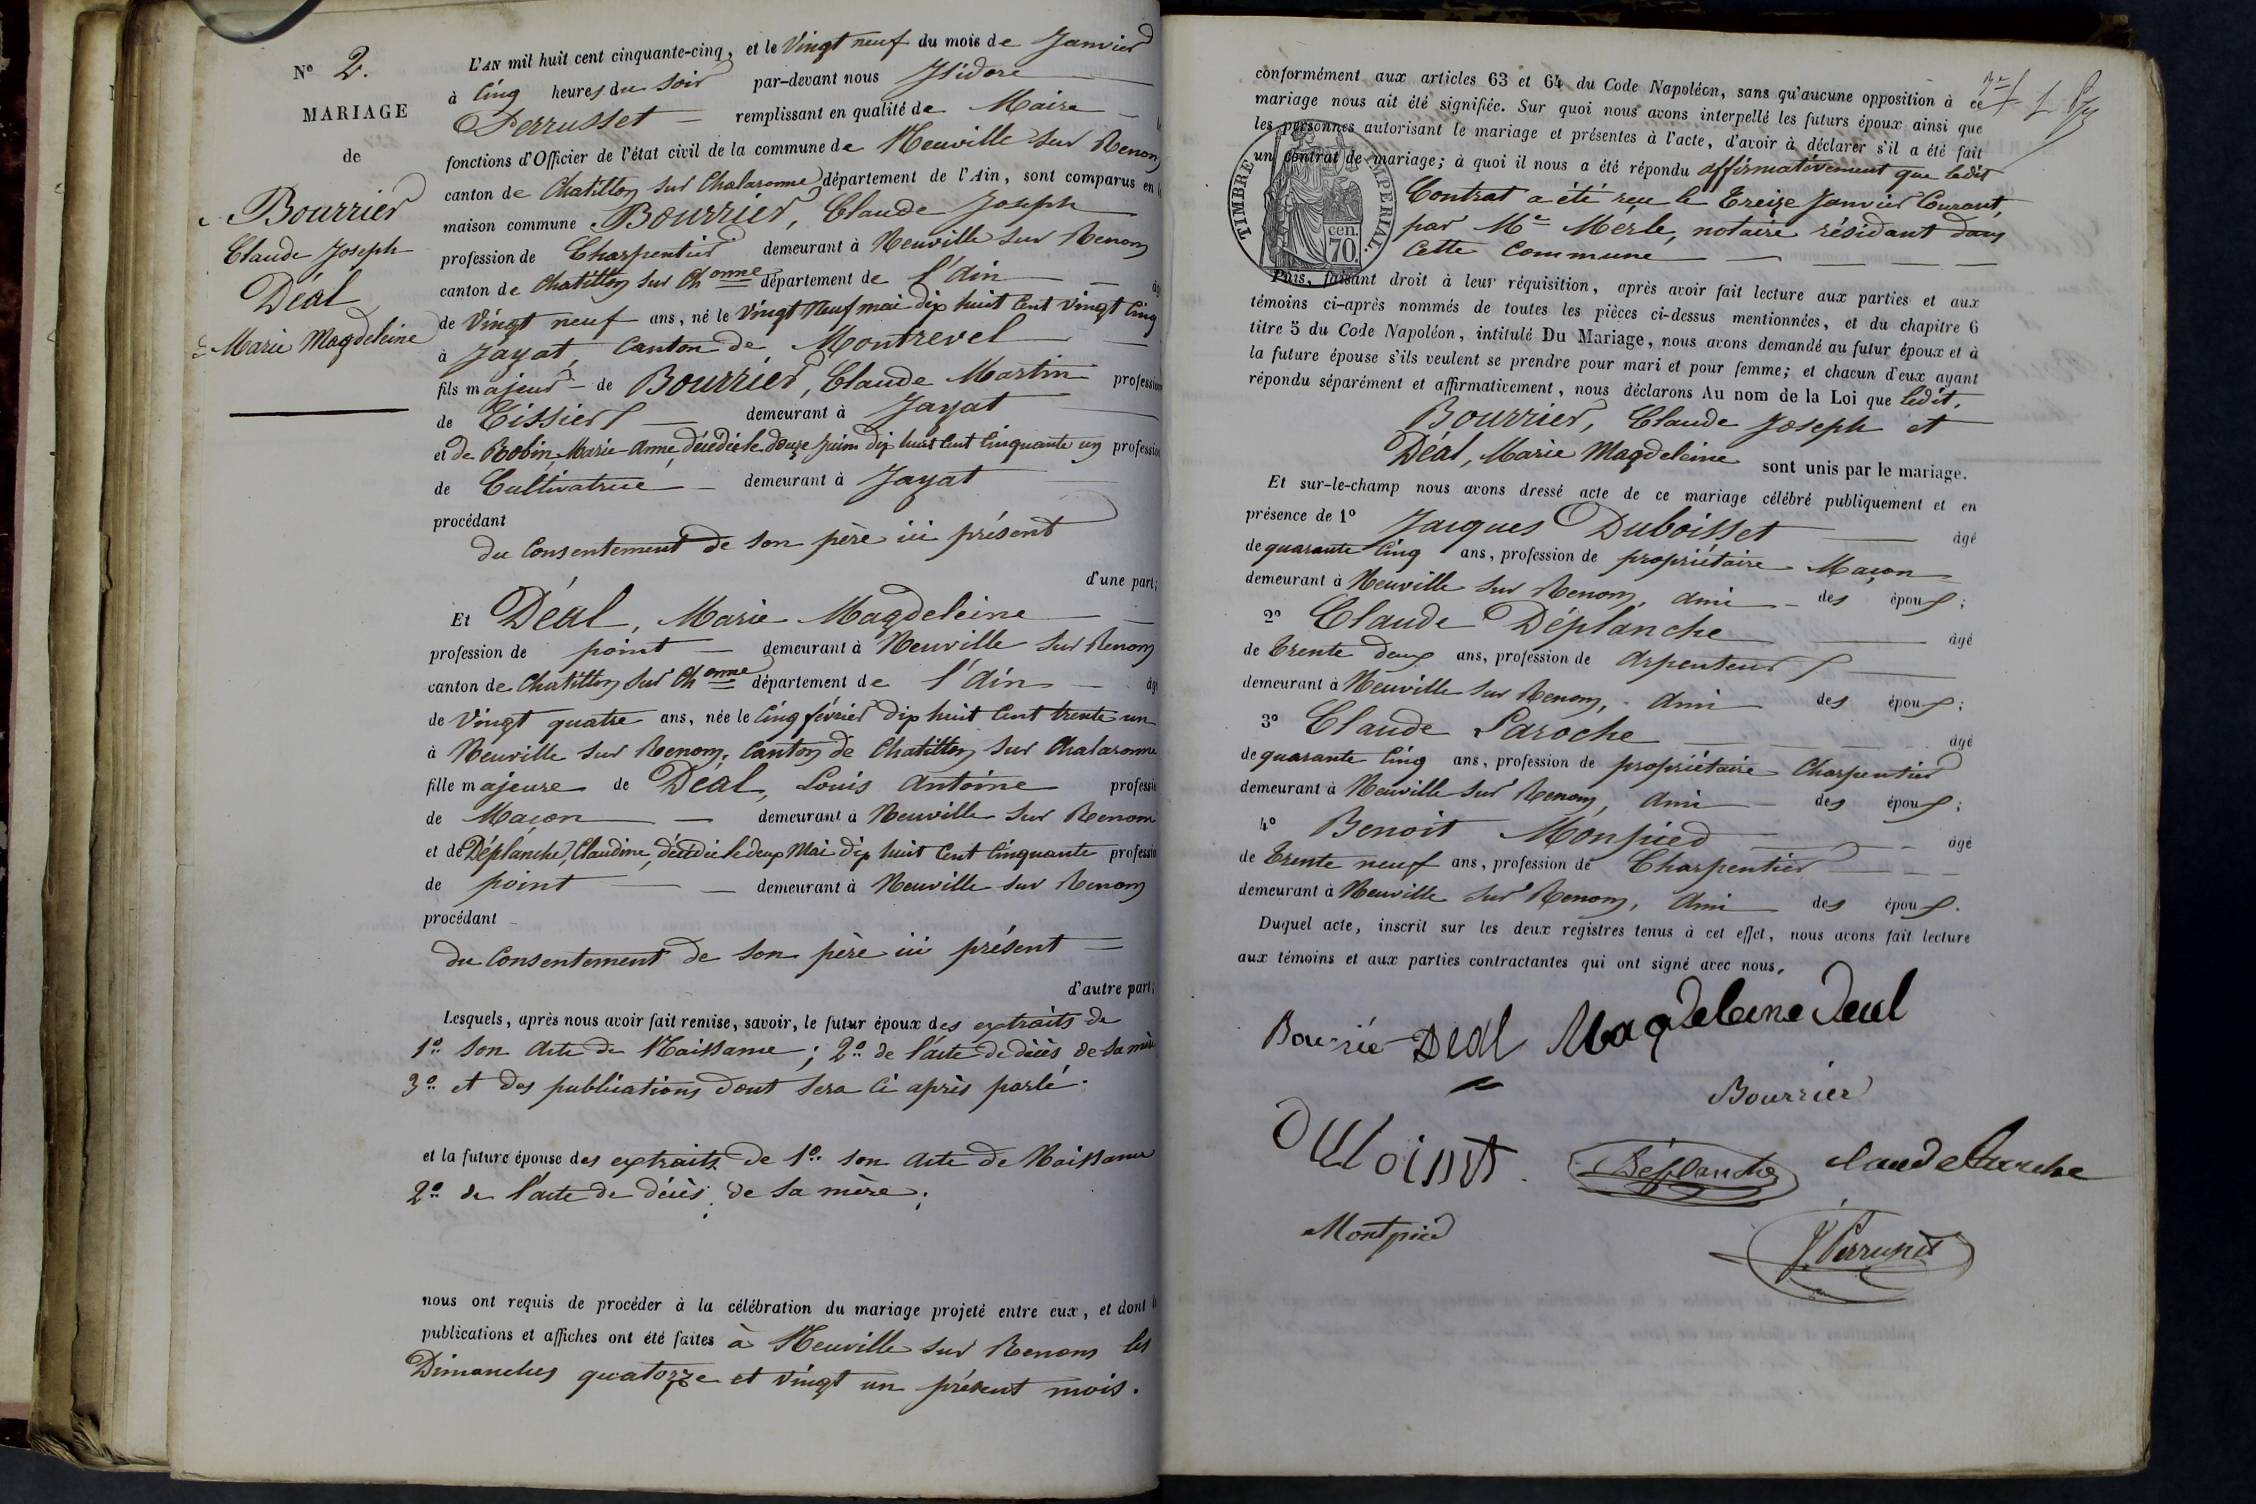 N° 2.
MARIAGE
de
Bourrier
Claude Joseph
Déal
Marie Magdeleine
L'AN mil huit cent cinquante-cinq, et le Vingt neuf du mois de Janvier
à Cinq heures du soir par-devant nous Isidore
Perrusset remplissant en qualité de Maire
fonctions d'Officier de l'état civil de la commune de Neuville sur Renon,
canton de Chatillon sur Chalaronne département de l'Ain, sont comparus en
maison commune Bourrier, Claude Joseph
profession de Charpentier demeurant à Neuville sur Renom
canton de Chatillon sur Chonne département de l'Ain
de Vingt neuf ans, né le Vingt Neuf mai dix huit Cent Vingt Cinq
à Jayat, Canton de Montrevel
fils majeur de Bourrier, Claude Martin profession
de Tissier demeurant à Jayat
et de Robin, Marie-Anne, décédée le douze Juin dix huit Cent Cinquante un profession
de Cultivatrice demeurant à Jayat
procédant
du Consentement de son père ici présent
d'une part;
Et Déal, Marie Magdeleine
profession de point demeurant à Neuville sur Renom
canton de Chatillon sur Chonne département de l'Ain
de Vingt quatre ans, née le Cinq février dix huit Cent trente un
à Neuville sur Renom, Canton de Chatillon sur Chalaronne
fille majeure de Déal, Louis Antoine professio
de Maçon demeurant à Neuville sur Renom
et de Déplanche, Claudine, décédée le deux Mai dix huit Cent Cinquante professio
de point demeurant à Neuville sur Renom
procédant
du Consentement de son père ici présent
d'autre part;
Lesquels, après nous avoir fait remise, savoir, le futur époux des extraits de
1° son Acte de Naissance; 2° de l'acte de décès de sa mère
3° et des publications dont sera Ci après parlé.
et la future épouse des extraits de 1° son Acte de Naissance
2° de l'acte de décès de sa mère;
nous ont requis de procéder à la célébration du mariage projeté entre eux, et dont
publications et affiches ont été faites à Neuville sur Renom les
Dimanches quatorze et Vingt un présent mois.
conformément aux articles 63 et 64 du Code Napoléon, sans qu'aucune opposition à ce
mariage nous ait été signifiée. Sur quoi nous avons interpellé les futurs époux ainsi que
les personnes autorisant le mariage et présentes à l'acte, d'avoir à déclarer s'il a été fait
un contrat de mariage; à quoi il nous a été répondu affirmativement que ledit
Contrat a été reçu le Treize Janvier Courant,
par Me Merle, notaire résidant dans
Cette Commune
TIMBRE IMPERIAL.
cen.
70.
Puis, faisant droit à leur réquisition, après avoir fait lecture aux parties et aux
témoins ci-après nommés de toutes les pièces ci-dessus mentionnées, et du chapitre 6
titre 5 du Code Napoléon, intitulé Du Mariage, nous avons demandé au futur époux et à
la future épouse s'ils veulent se prendre pour mari et pour femme; et chacun d'eux ayant
répondu séparément et affirmativement, nous déclarons Au nom de la Loi que ledit,
Bourrier, Claude Joseph et
Déal, Marie Magdeleine sont unis par le mariage.
Et sur-le-champ nous avons dressé acte de ce mariage célébré publiquement et en
présence de 1° Jacques Duboisset âgé
de quarante Cinq ans, profession de propriétaire Maçon
demeurant à Neuville sur Renom, Ami des époux;
2° Claude Déplanche âgé
de Trente deux ans, profession de Arpenteur
demeurant à Neuville sur Renom, Ami des époux;
3° Claude Laroche âgé
de quarante Cinq ans, profession de propriétaire Charpentier
demeurant à Neuville sur Renom, Ami des époux;
4° Benoit Monpied âgé
de Trente neuf ans, profession de Charpentier
demeurant à Neuville sur Renom, Ami des époux.
Duquel acte, inscrit sur les deux registres tenus à cet effet, nous avons fait lecture
aux témoins et aux parties contractantes qui ont signé avec nous.
Bourrié Déal Magdeleine Deal
Bourrier
Déplanche Claude Laroche
Montpied
J. Perrusset